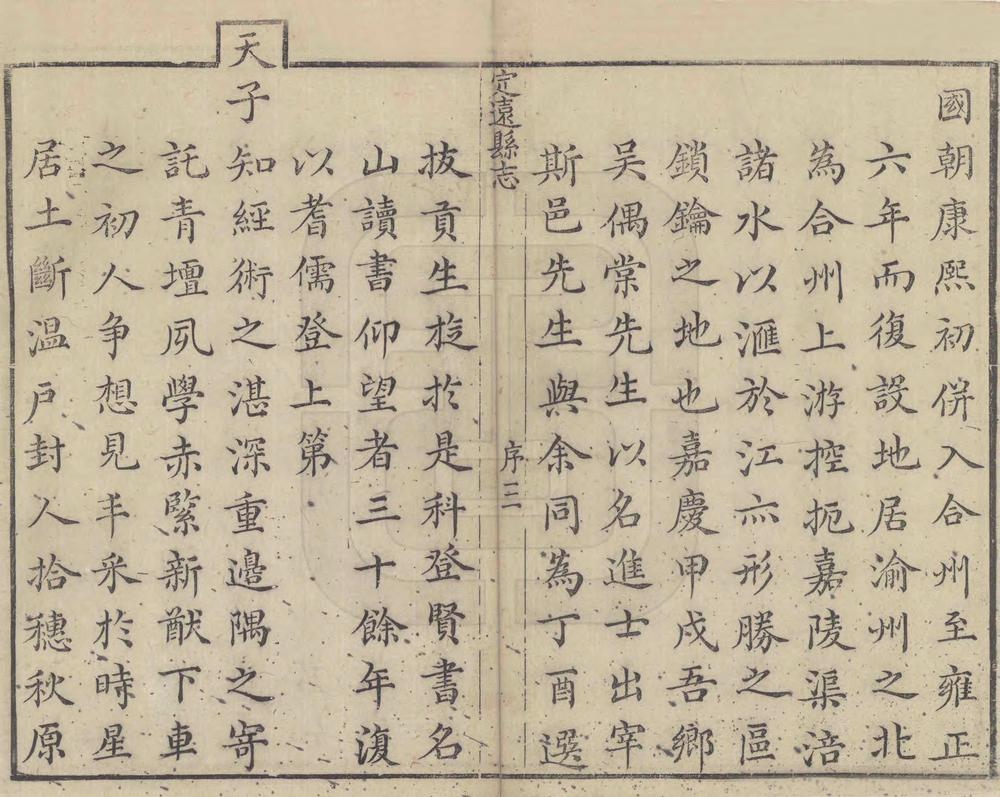 國朝康熙初併入合州至雍正
六年而復設地居渝州之北
為合州上游控扼嘉陵渠涪
諸水以滙於江亦形勝之區
鎖鑰之地也嘉慶甲戌吾鄉
吴偶棠先生以名進士出宰
斯邑先生與余同為丁酉選
定遠縣志
序三
拔貢生㫌於是科登賢書名
山讀書仰望者三十餘年復
以耆儒登上第
天子知經術之湛深重邊隅之寄
託青壇夙學赤緊新猷下車
之初人争想見丰采於時星
居土斷温戸封人拾穗秋原